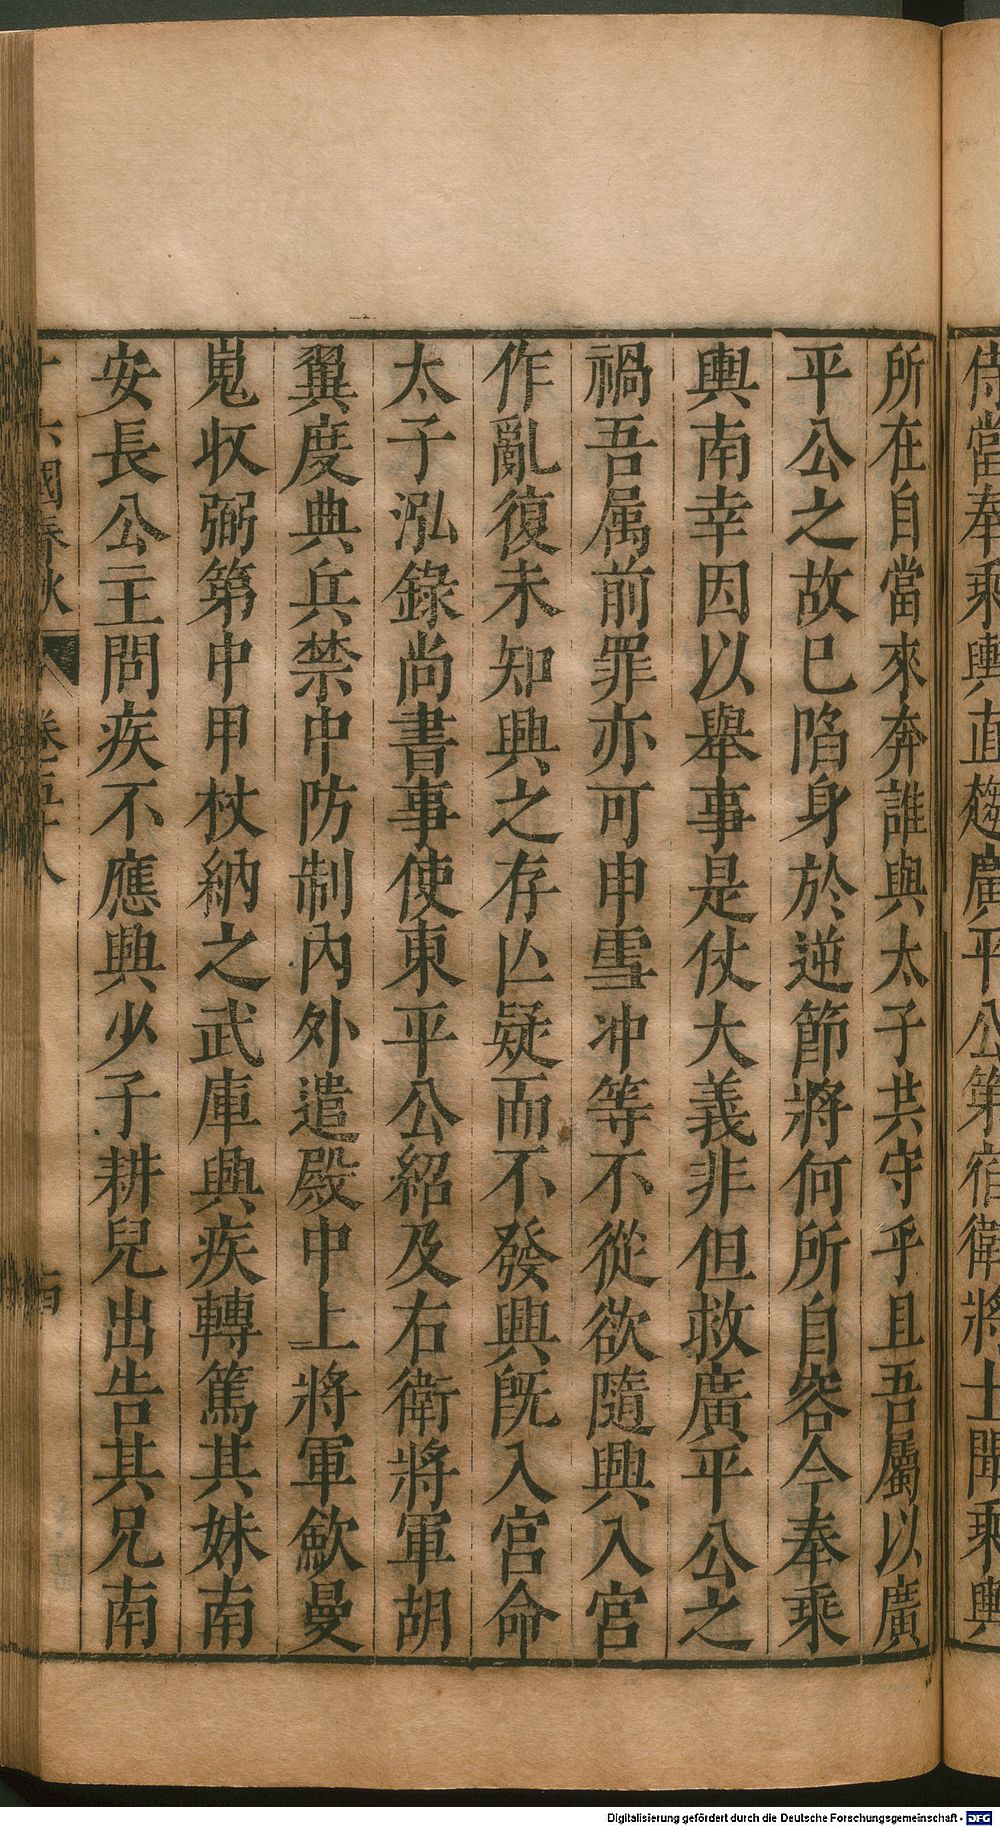 侍當奉乘輿直趨廣平公第宿衛將士聞乘輿
所在自當來奔誰與太子共守乎且吾屬以廣
平公之故已陷身於逆節將何所自容今奉乘
輿南幸因以舉事是仗大義非但救廣平公之
禍吾属前罪亦可申雪冲等不從欲隨興入宮
作亂復未知興之存亾疑而不發興旣入宮命
太子泓錄尚書事使東平公紹及右衛將軍胡
翼度典兵禁中防制內外遣殿中上將軍歛曼
嵬收弼第中甲杖納之武庫興疾轉篤其妹南
安長公主問疾不應興少子耕兒出告其兄南
十六國春秋
卷五十八
Digitalisierung gefördert durch die Deutsche Forschungsgemeinschaft - DFG